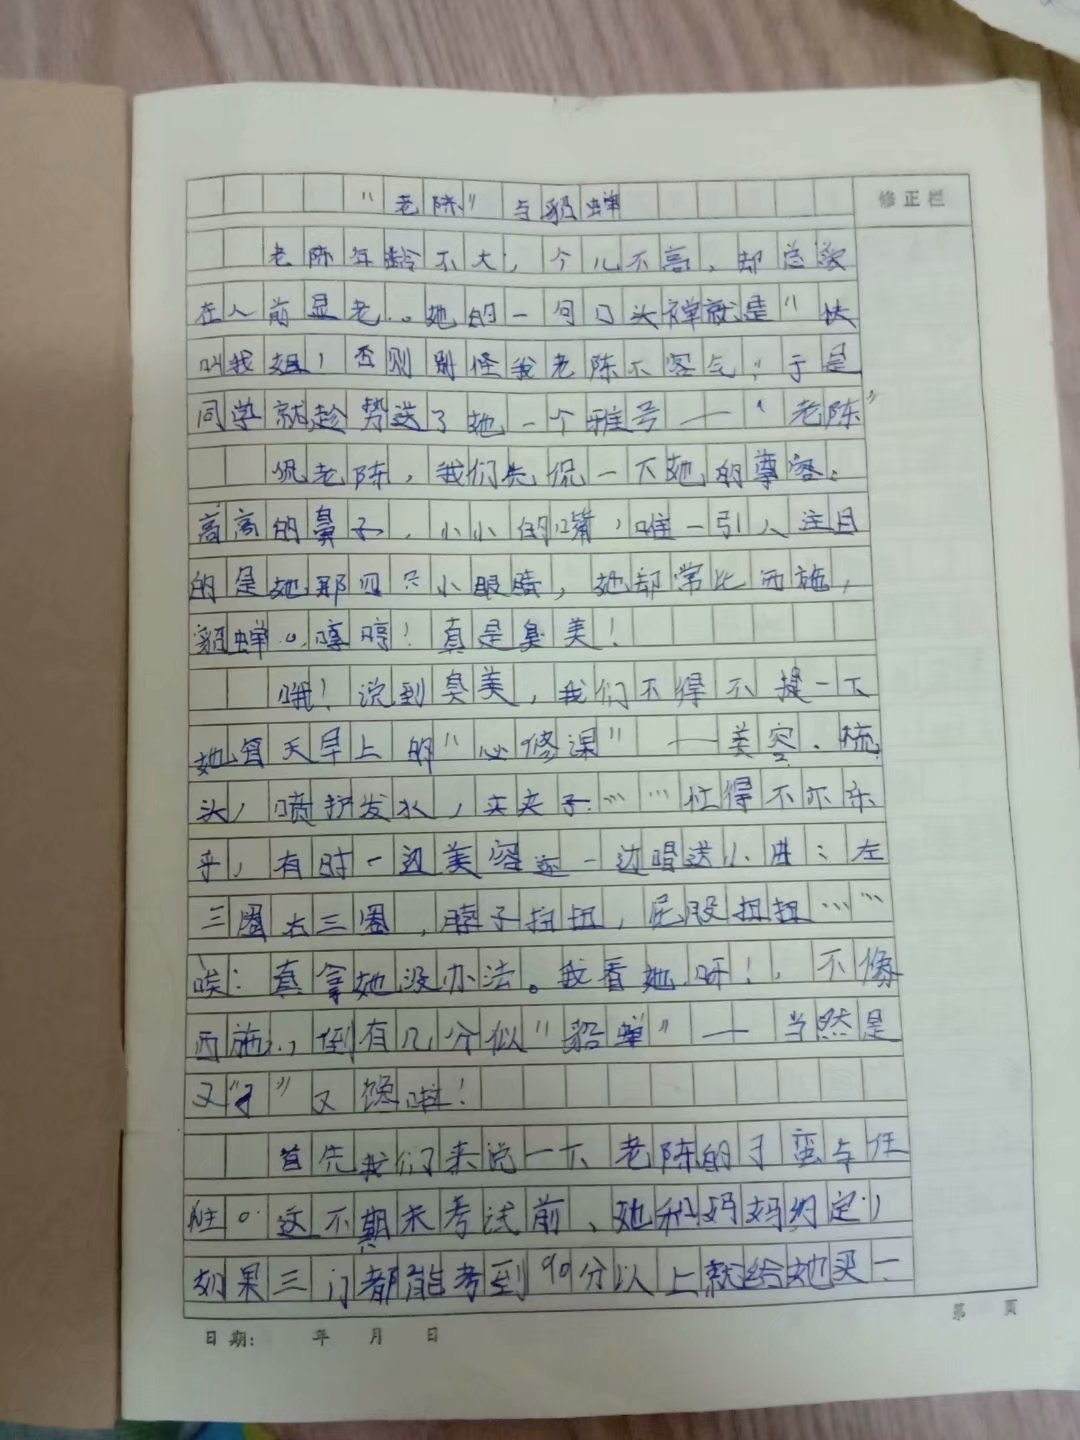 “老陈”与貂蝉
修正栏
老陈年龄不大，个儿不高，却总欢
在人前显老。她的一句口头禅就是“快
叫我姐！否则别怪我老陈不客气”于是
同学就趁势送了她一个雅号——“老陈”
侃老陈，我们先侃一下她的尊容：
高高的鼻子，小小的嘴，唯一引人注目
的是她那四只小眼睛，她却常比西施，
貂蝉。哼哼！真是臭美！
哦！说到臭美，我们不得不提一下
她每天早上的“必修课”——美容．梳
头，喷护发水，夹夹子……忙得不亦乐
乎，有时一边美容还一边唱送小曲：左
三圈右三圈，脖子扭扭，屁股扭扭……
唉：真拿她没办法。我看她呀！，不像
西施，倒有几分似“貂蝉”——当然是
又“刁”又馋啦！
首先我们来说一下老陈的刁蛮与任
性。这不期末考试前、她和妈妈约定，
如果三门都能考到90分以上就给她买一
日期： 年 月 日
第 页